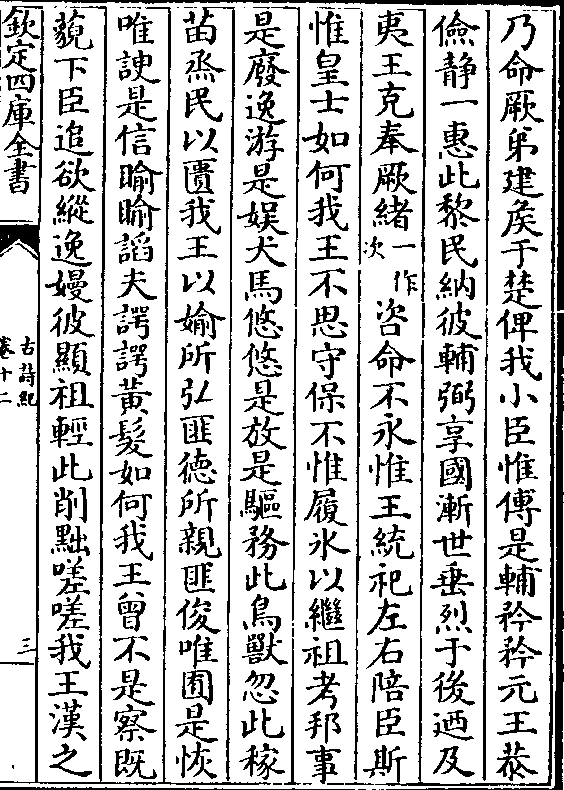 乃命厥弟建矦于楚俾我小臣惟傅是輔矜矜元王恭
儉静一惠此黎民納彼輔弼享國漸世垂烈于後迺及
夷王克奉厥緒一作次咨命不永惟王統祀左右陪臣斯
惟皇士如何我王不思守保不惟履氷以繼祖考邦事
是廢逸游是娱犬馬悠悠是放是驅務此鳥獸忽此稼
苗烝民以匱我王以媮所弘匪德所親匪俊唯囿是恢
唯諛是信睮睮謟夫諤諤黃髮如何我王曾不是察既
藐下臣追欲縱逸嫚彼顯祖輕此削黜嗟嗟我王漢之
欽定四庫全書
古詩紀
卷十二
三